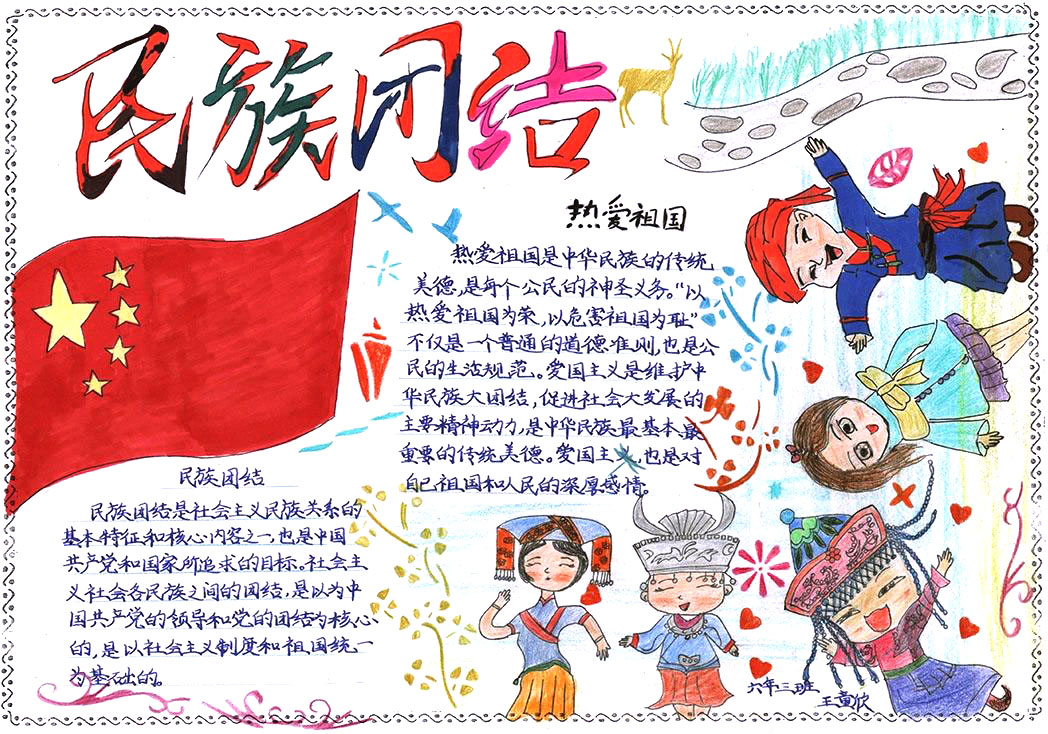 民族团结
热爱祖国
热爱祖国是中华民族的传统
美德,是每个公民的神圣义务。“以
热爱祖国为荣,以危害祖国为耻”
不仅是一个普通的道德准则,也是公
民的生活规范。爱国主义是维护中
华民族大团结,促进社会大发展的
主要精神动力,是中华民族最基本、最
重要的传统美德。爱国主义,也是对
自己祖国和人民的深厚感情。
民族团结
民族团结是社会主义民族关系的
基本特征和核心内容之一,也是中国
共产党和国家所追求的目标。社会主
义社会各民族之间的团结,是以为中
国共产党的领导和党的团结为核心
的,是以社会主义制度和祖国统一
为基础的。
六年三班
王童欣